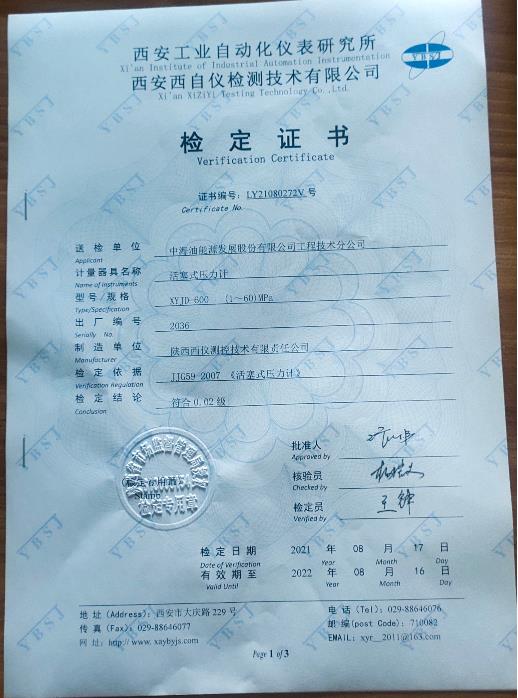 西安工业自动化仪表研究所
Xi'an Institute of Industrial Automation Instrumentation
西安西自仪检测技术有限公司
Xi'an XiZiYi Testing Technology Co.,Ltd.
YBSJ
检定证书
Verification Certificate
证书编号：LY21080272V 号
Certificate No.
送检单位 中海油能源发展股份有限公司工程技术分公司
Applicant
计量器具名称 活塞式压力计
Name of Instruments
型号/规格 XYJD-600 (1～60)MPa
Type/Specification
出厂编号 2036
Serially No.
制造单位 陕西西仪测控技术有限责任公司
Manufacturer
检定依据 JJG59-2007 《活塞式压力计》
Verification Regulation
检定结论 符合0.02级
Conclusion
检定专用章
Stamp
批准人
Approved by
核验员
Checked by
检定员 王锋
Verified by
检定日期 2021 年 08 月 17 日
Date of Verification Year Month Day
有效期至 2022 年 08 月 16 日
Valid Until Year Month Day
地址(Address)：西安市大庆路229号
电话(Tel)：029-88646076
传真(Fax)：029-88646077
邮编(post Code)：710082
网址：http://www.xaybyjs.com
EMAIL：xyr_2011@163.com
Page 1 of 3